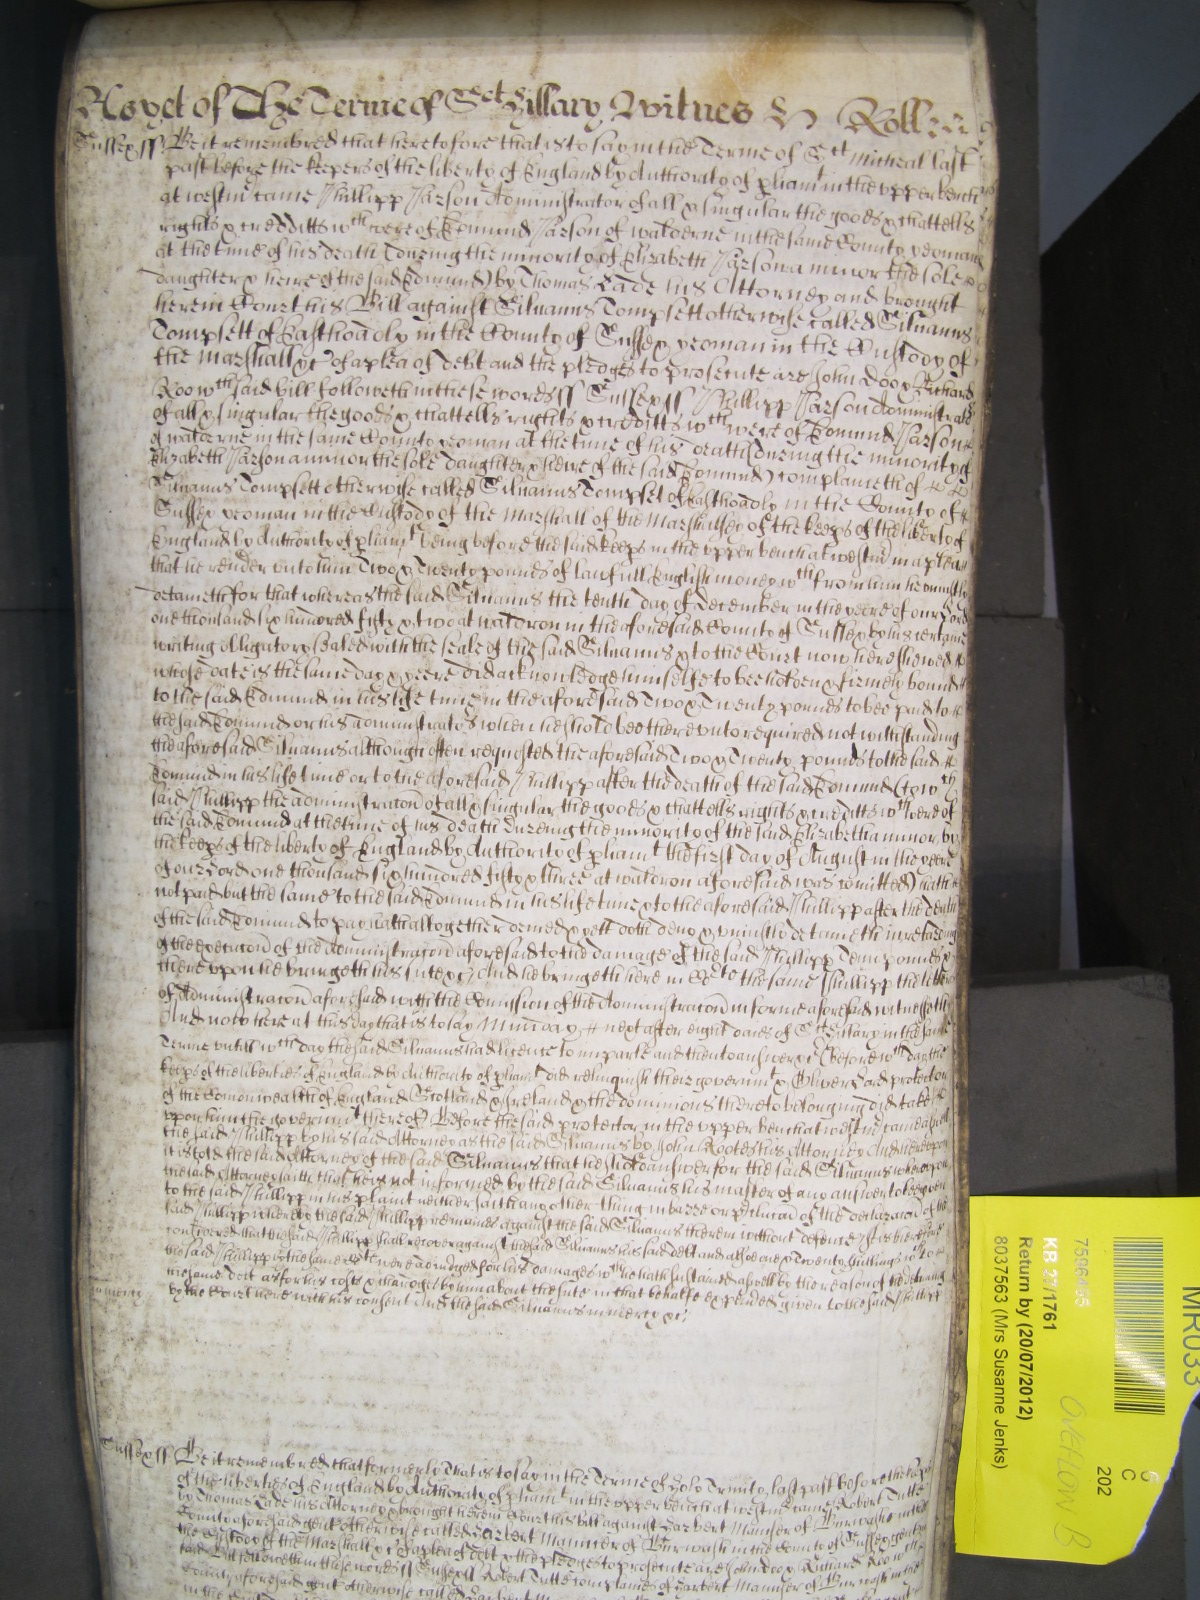 As yet of The Terme of Sct Hillary Witnes Roll:
Sussex ss Be it remembred that heretofore that is to say in the Terme of Sct Micheal last
past before the keepers of the liberty of England by Authority of pliamt in the upper bench
at westm came Phillipp Parson Administrator of all & singular the goods & chattells
rights & credditts wch were of Edmund Parson of Waldern in the same County yeoman
at the time of his death During the minority of Elizabeth Parson a minor the sole
daughter & heire of the said Edmund) by Thomas Lade his Attorney and brought
here in Court his Bill against Silvanus Tompsett otherwise called Silvanus
Tompsett of Easthoadly in the County of Sussex yeoman in the Custody of
the Marshall &c of a plea of debt and the pledges to prosecute are John Doo & Richard
Roo wch said bill followeth in these words ss Sussex ss Phillipp Parson Administrator
of all & singular the goods & chattells rights & creditts wch were of Edmund Parson
of Walderne in the same County yeoman at the time of his death dureing the minority of
Elizabeth Parson a minor the sole daughter & heire of the said Edmund) complaineth of
Silvanus Tompsett otherwise called Silvanus Tompset of Easthoadly in the County of
Sussex yeoman in the Custody of the Marshall of the Marshalsey of the keeps of the liberty of
England by Authority of pliamt being before the said keeps in the upper bench at westm in a plea
that he render unto him Two & Twenty pounds of lawfull English money wch from him he uniustly
detaineth for that whereas the said Silvanus the tenth day of December in the yeere of our Lord
one thousand six hundred fifty & two at Waldron in the aforesaid County of Sussex by his certaine
writing obligatory sealed with the seale of the said Silvanus & to the Court now here shewed
whose date is the same day & yeere did acknowledge himselfe to bee holden & firmely bound
to the said Edmund in his life time in the aforesaid Two & Twenty pounds to bee paid to
the said Edmund or his administrators when he should bee thereunto required not withstanding
the aforesaid Silvanus although often requested the aforesaid Two & Twenty pounds to the said
Edmund in his life time or to the aforesaid Phillipp after the death of the said Edmund (to wch
said Phillipp the administracon of all & singular the goods & chattells rights & creditts wch were of
the said Edmund at the time of his death Dureing the minority of the said Elizabeth a minor by
the keeps of the liberty of England by Authority of pliamt the first day of August in the yeere
of our Lord one thousand six hundred fifty & three at Waldron aforesaid was comitted) hath
not paid but the same to the said Edmund in his life time & to the aforesaid Phillipp after the death
of the said Edmund to pay hath altogether denied & yett doth deny & uniustly detaineth in retarding
of the execucon of the Administracon aforesaid to the damage of the said Phillipp Tenn pounds &
thereupon he bringeth his suite &c And he bringeth here in Co the same Phillipp the letters
of Administracon aforesaid wch the Comission of the Administracon in forme aforesaid witnesseth
And now here at this day that is to say Munday next after eight daies of Sct Hillary in the same
Terme untill wch day the said Silvanus had licence to imparle and then to answer &c (before wch day the
keeps of the liberties of England by Authority of pliamt did relinquish their governmt & Oliver Lord protector
of the Comonwealth of England Scotland & Ireland & the dominions thereto belonging did take
upon him the governmt thereof) Before the said protector in the upper bench at westm came aswell
the said Phillipp by his said Attorney as the said Silvanus by John Rootes his Attorney And hereupon
it is told the said Attorney of the said Silvanus that he should answer for the said Silvanus whereupon
the said Attorney saith that he is not informed by the said Silvanus his master of any answer to bee given
to the said Phillipp in his plaint neither saith any other thing in barre or preclucon of the declaracon of the
said Phillipp whereby the said Phillipp remaines against the said Silvanus therein without defence Itt is therefore
considered that the said Phillipp shall recover against the said Silvanus his said debt and alsoe one & Twenty shillings
the said Phillipp by the same Court here adiudged for his damages wch he hath sustained aswell by the reason of the deteining
the same debt as for his costs & charges by him about the suite in that behalfe expended given to the said Phillipp
by the Court here with his consent And the said Silvanus in mercy &c
in mercy
Sussex ss Be it remembred that formerly that is to say in the Terme of holy Trinity last past before the keeps
of the liberties of England by Authority of pliamt in the upper bench at westm came Robert Tutte
by Thomas Lade his Attorney & brought here in Court his bill against Harbert Manser of Burwash in the
County aforesaid gent otherwise called Harbert Manser of Burwash in the County of Sussex gent in
the Custody of the Marshall &c of a plea of debt & the pledges to prosecute are John doo & Richard Roo wch
said Bill followeth in these words ss Sussex ss Robert Tutte complaines of Harbert Manser of Burwash in the
County aforesaid gent otherwise called Harbert
MR033
6
C
202
OVERFLOW B
KB 27/1761
Return by (20/07/2012)
8037563 (Mrs Susanne Jenks)